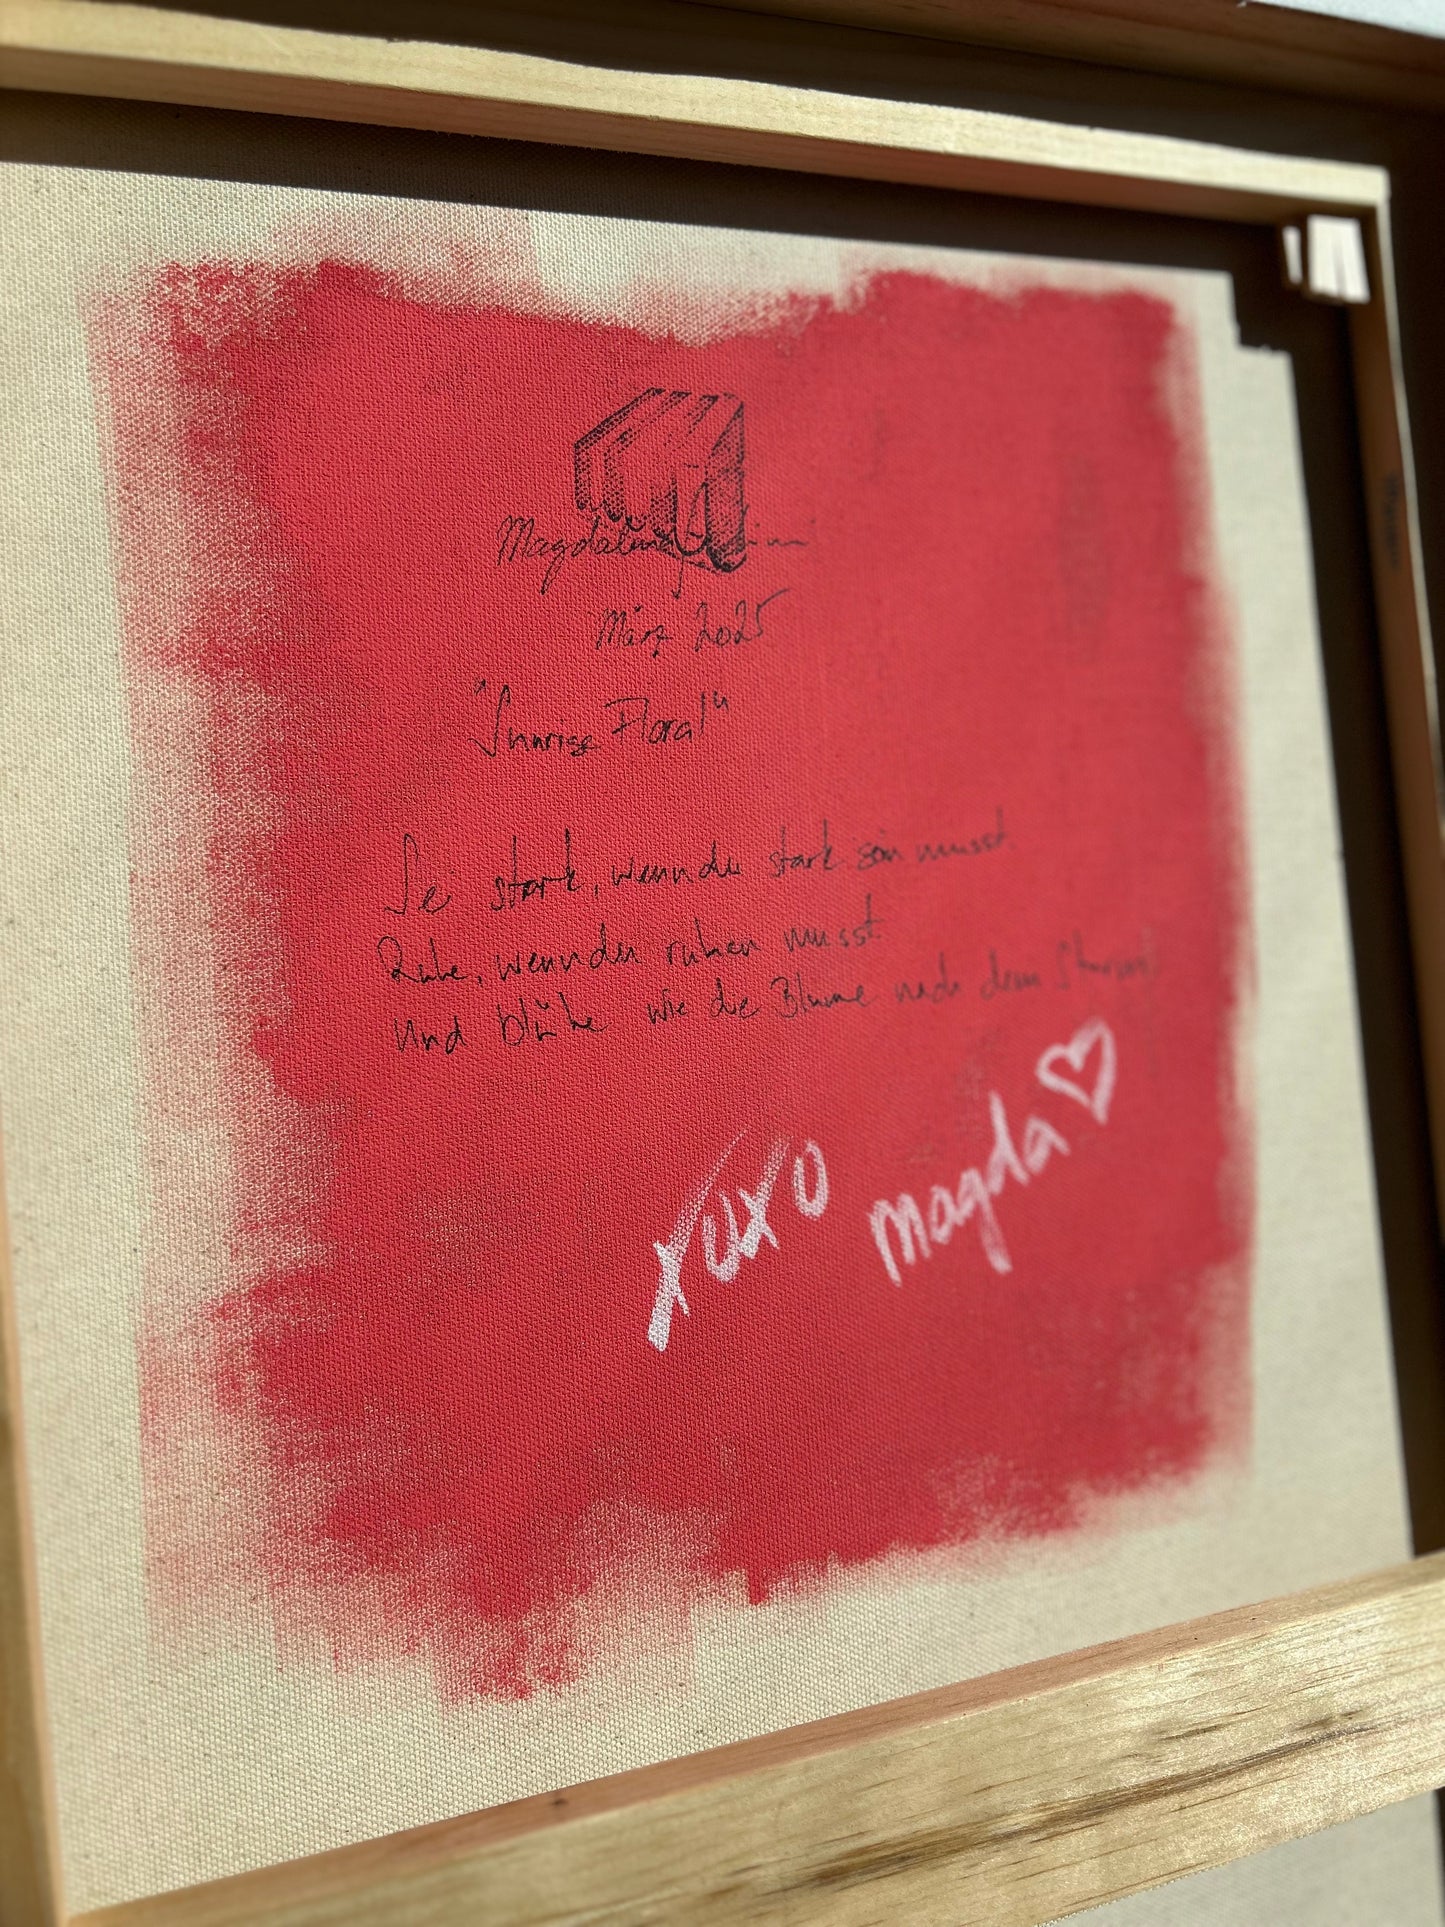 Magdalena
März 2025
"Sunrise Floral"
Sei stark, wenn du stark sein musst.
Ruhe, wenn du ruhen musst.
Und blühe wie die Blume nach dem Sturm!
xoxo Magda